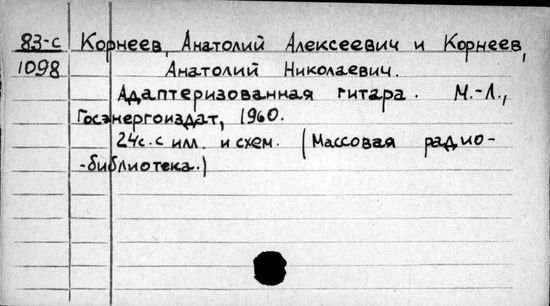 83-с Корнеев, Анатолий Алексеевич и Корнеев,
1098 Анатолий Николаевич.
Адаптеризованная гитара. М.-Л.,
Госэнергоиздат, 1960.
24с. с илл. и схем. (Массовая радио-
-библиотека.)